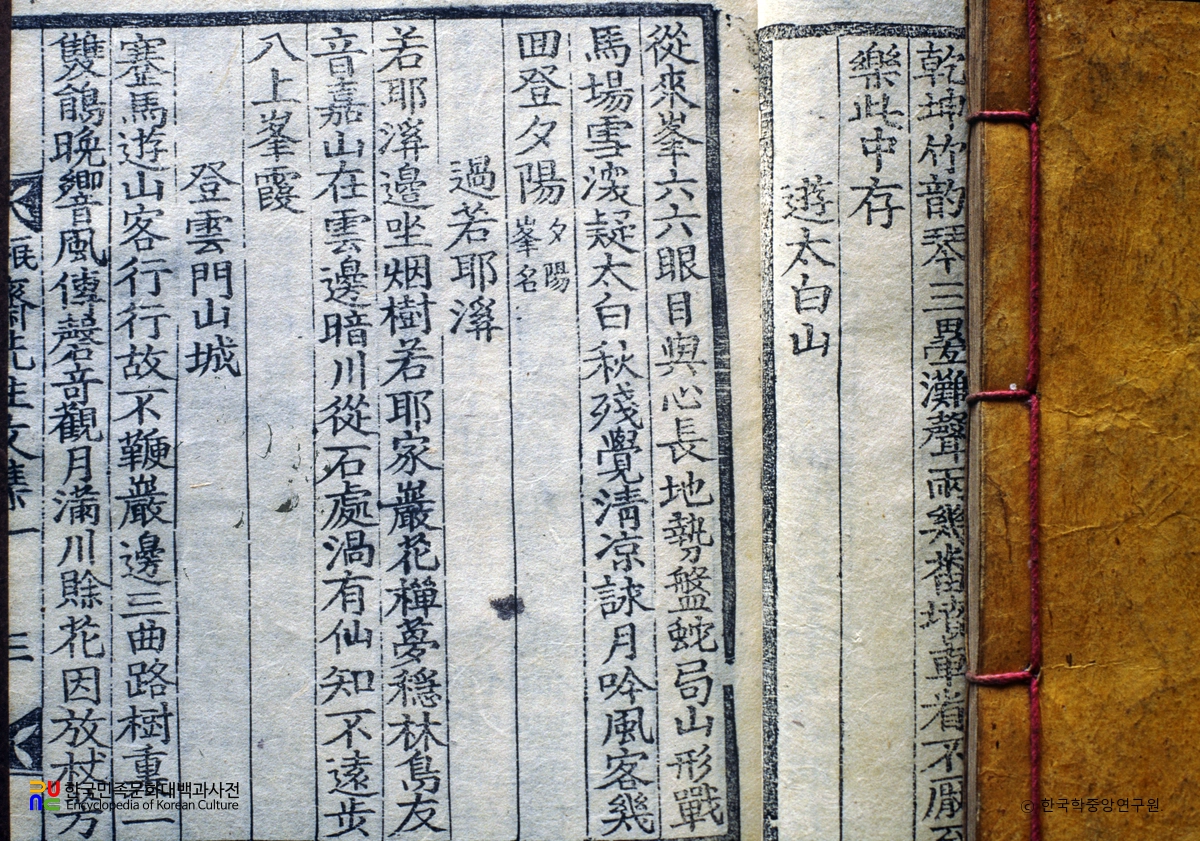 乾坤竹韵琴三疊灘聲雨幾舊車看不厭至
樂此中存
遊太白山
從來峯六六眼目與心長地勢盤蛇局山形戰
馬場雪淺疑太白秋殘覺淸凉詠月吟風客幾
回登夕陽 夕陽峯名
過若耶溪
若耶溪邊坐烟樹若耶家巖花禪夢穩林鳥友
音嘉山在雲邊暗川從石處渦有仙知不遠步
八上峯霞
登雲門山城
蹇馬遊山客行行故不鞭巖邊三曲路樹重一
雙鶴晩響風傳磬音觀月滿川賖花因放杖方
齋先生文集一
三
한국민족문화대백과사전
Encyclopedia of Korean Culture
© 한국학중앙연구원